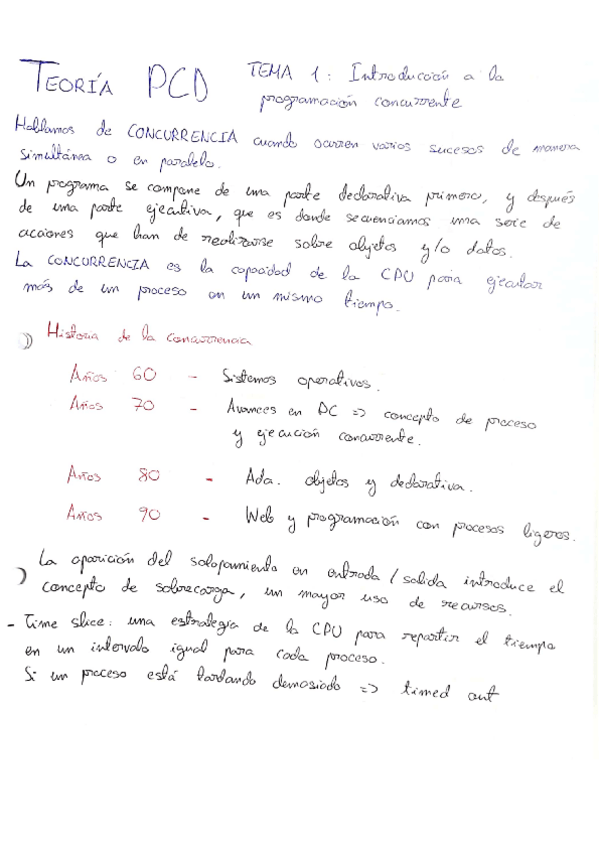 TEORÍA PCD
TEMA 1: Introducción a la
programación concurrente
Hablamos de CONCURRENCIA cuando ocurren varios sucesos de manera
simultánea o en paralelo.
Un programa se compone de una parte declarativa primero, y después
de una parte ejecutiva, que es donde secuenciamos una serie de
acciones que han de realizarse sobre objetos y/o datos.
La CONCURRENCIA es la capacidad de la CPU para ejecutar
más de un proceso en un mismo tiempo.
Historia de la concurrencia
Años 60 - Sistemas operativos.
Años 70 - Avances en PC => concepto de proceso
y ejecución concurrente.
Años 80 - Ada. objetos y declarativa.
Años 90 - Web y programación con procesos ligeros.
La aparición del solapamiento en entrada/salida introduce el
concepto de sobrecarga, un mayor uso de recursos.
- Time slice: una estrategia de la CPU para repartir el tiempo
en un intervalo igual para cada proceso.
Si un proceso está tardando demasiado => timed out